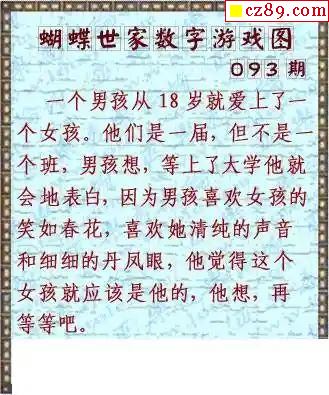 cz89.com
蝴蝶世家数字游戏图
093期
一个男孩从18岁就爱上了一
个女孩。他们是一届，但不是一
个班，男孩想，等上了大学他就
会地表白，因为男孩喜欢女孩的
笑如春花，喜欢她清纯的声音
和细细的丹凤眼，他觉得这个
女孩就应该是他的，他想，再
等等吧。